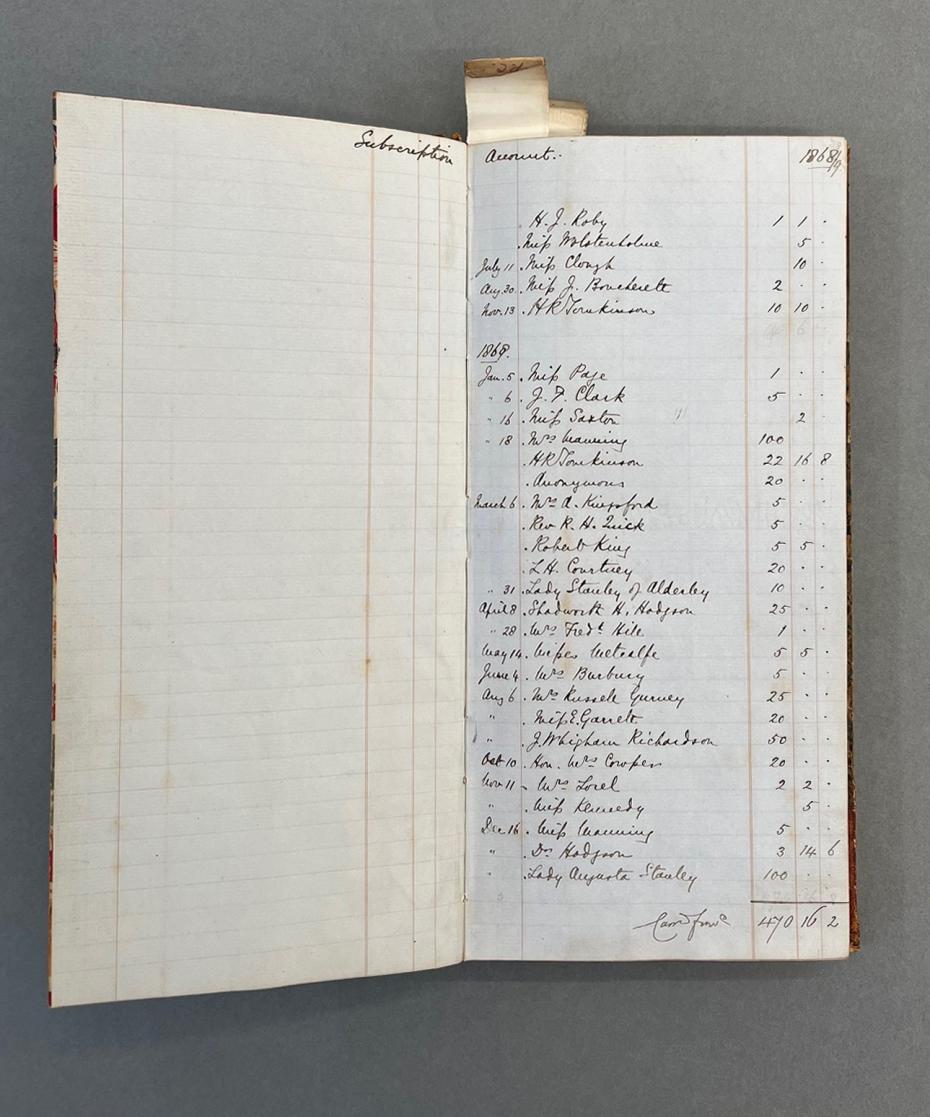 Subscription Account:-
1868/9.
H. J. Roby 1 1 ·
Miss Wolstenholme 5 ·
July 11 Miss Clough 10 ·
Aug. 30 Miss J. Boucherett 2 · ·
Nov. 13 H R Tomkinson 10 10 ·
1869.
Jan. 5 Miss Page 1 · ·
" 6 J. F. Clark 5 · ·
" 16 Miss Saxton 2 ·
" 18 Mrs Manning 100
H R Tomkinson 22 16 8
Anonymous 20 · ·
March 6 Mrs A. Kingsford 5 · ·
Rev R. H. Quick 5 · ·
Robert King 5 5 ·
L H. Courtney 20 · ·
" 31 Lady Stanley of Alderley 10 · ·
April 8 Shadworth H. Hodgson 25 · ·
" 28 Mrs Fredk Hill 1 · ·
May 14 Misses Metcalfe 5 5 ·
June 4 Mrs Burbury 5 · ·
Aug 6 Mrs Russell Gurney 25 · ·
" Miss E. Garrett 20 · ·
" J. Whigham Richardson 50 · ·
Oct 10 Hon. Mrs Cowper 20 · ·
Nov 11 Mrs 2 2 ·
" Miss Kennedy 5 ·
Dec 16 Miss Manning 5 · ·
" Dr Hodgson 3 14 6
" Lady Augusta Stanley 100 · ·
Carrd forwd 470 16 2